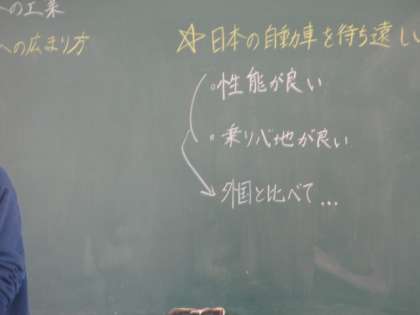 への工業
への広まり方
☆日本の自動車を待ち遠し
・性能が良い
・乗り心地が良い
外国と比べて...